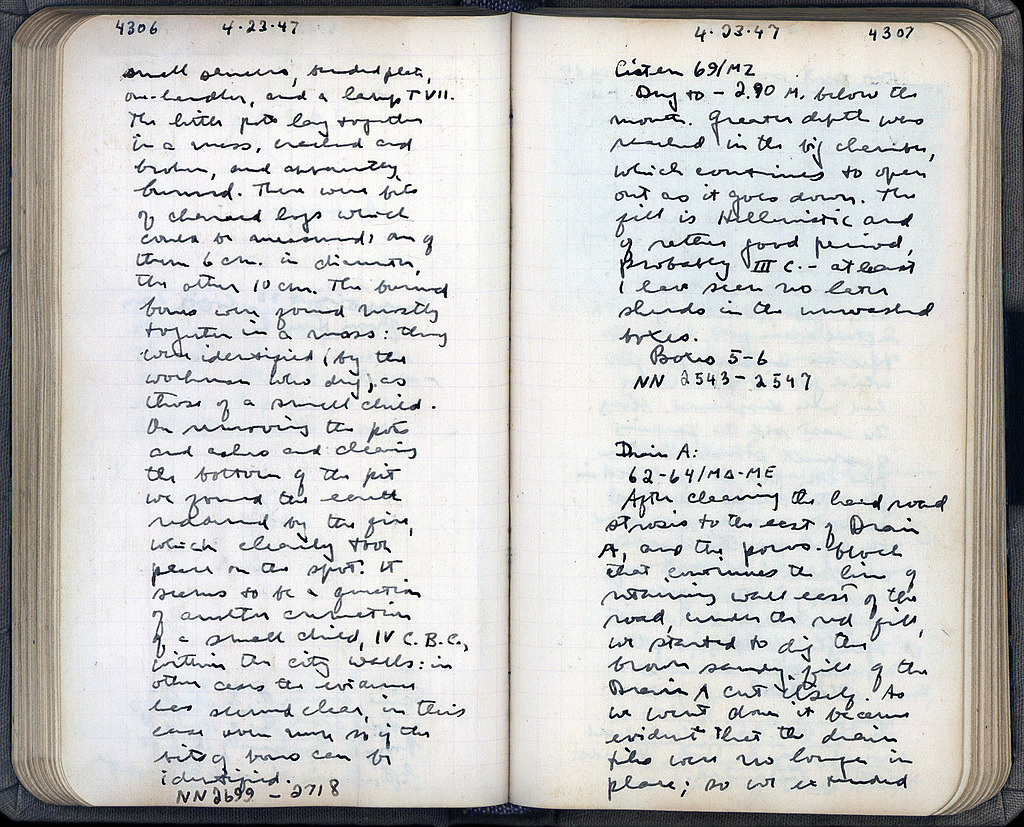 4306 4-23-47
small saucers,
one-handler, and a lamp T VII.
The little pots lay together
in a mass, cracked and
broken, and apparently
burned. There were bits
of charred logs which
could be measured: one of
them 6 cm. in diameter,
the other 10 cm. The burned
bones were found mostly
together in a mass: they
were identified (by the
workman who dug), as
those of a small child.
On removing the pots
and ashes and clearing
the bottom of the pit
we found the earth
reddened by the fire,
which clearly took
place on the spot. It
seems to be a question
of another cremation
of a small child, IV C. B.C.,
within the city walls: in
other cases the evidence
has seemed clear, in this
case even more so if the
bits of bone can be
identified.
NN 2699 - 2718
4-23-47 4307
Cistern 69/MZ
Dug to - 2.90 M. below the
mouth. Greater depth was
reached in the big chamber,
which continues to open
out as it goes down. The
fill is Hellenistic and
of rather good period,
probably III C. - at least
I have seen no later
sherds in the unwashed
boxes.
Boxes 5-6
NN 2543 - 2547
Drain A:
62-64/MΔ-ME
After clearing the hard road
strosis to the east of Drain
A, and the poros block
that continues the line of
retaining wall east of the
road, under the red fill,
we started to dig the
brown sandy fill of the
Drain A cut itself. As
we went down it became
evident that the drain
tiles were no longer in
place; so we extended